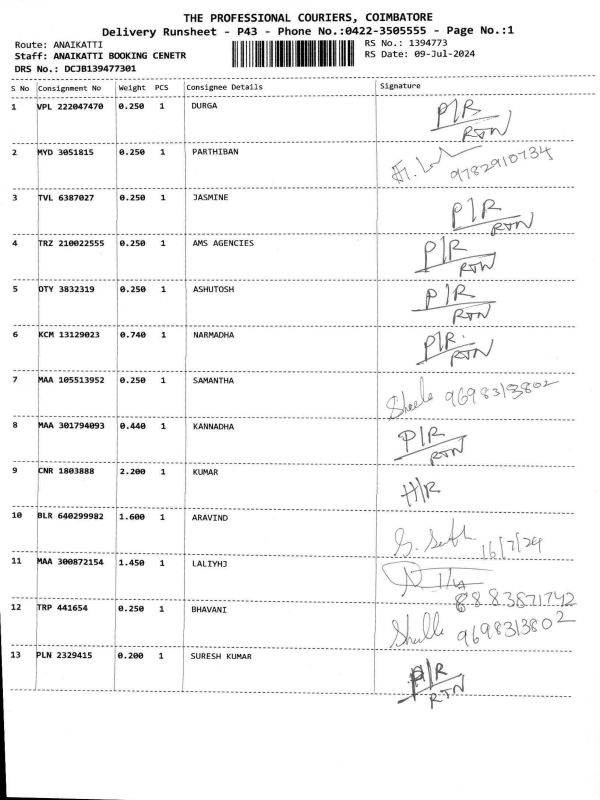 THE PROFESSIONAL COURIERS, COIMBATORE
Delivery Runsheet - P43 - Phone No.:0422-3505555 - Page No.:1
Route: ANAIKATTI RS No.: 1394773
Staff: ANAIKATTI BOOKING CENETR RS Date: 09-Jul-2024
DRS No.: DCJB139477301
S No Consignment No Weight PCS Consignee Details Signature
1 VPL 222047470 0.250 1 DURGA P/R
RTN
2 MYD 3051815 0.250 1 PARTHIBAN 9782910734
3 TVL 6387027 0.250 1 JASMINE P/R
RTN
4 TRZ 210022555 0.250 1 AMS AGENCIES P/R
RTN
5 OTY 3832319 0.250 1 ASHUTOSH P/R
RTN
6 KCM 13129023 0.740 1 NARMADHA P/R
RTN
7 MAA 105513952 0.250 1 SAMANTHA Sheela 9698313802
8 MAA 301794093 0.440 1 KANNADHA P/R
RTN
9 CNR 1803888 2.200 1 KUMAR H/R
10 BLR 640299982 1.600 1 ARAVIND 16/7/24
11 MAA 300872154 1.450 1 LALIYHJ
8883871742
12 TRP 441654 0.250 1 BHAVANI 9698313802
13 PLN 2329415 0.200 1 SURESH KUMAR P/R
RTN